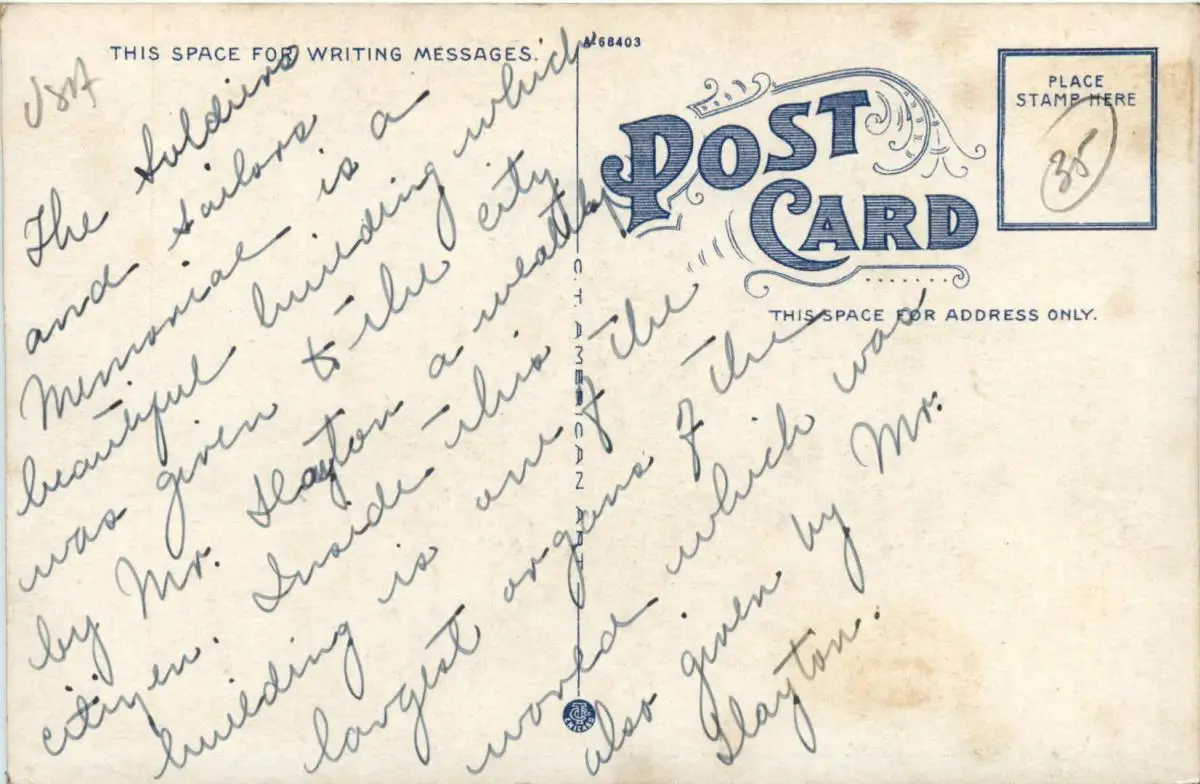 THIS SPACE FOR WRITING MESSAGES.
A-68403
PLACE
STAMP HERE
35
POST
CARD
THIS SPACE FOR ADDRESS ONLY.
C.T. AMERICAN ART
CHICAGO
The Soldiers
and Sailors
Memorial is a
beautiful building which
was given to the city
by Mr. Slayton a wealthy
citizen. Inside this
building is one of the
largest organs of the
world which was
also given by Mr.
Slayton.